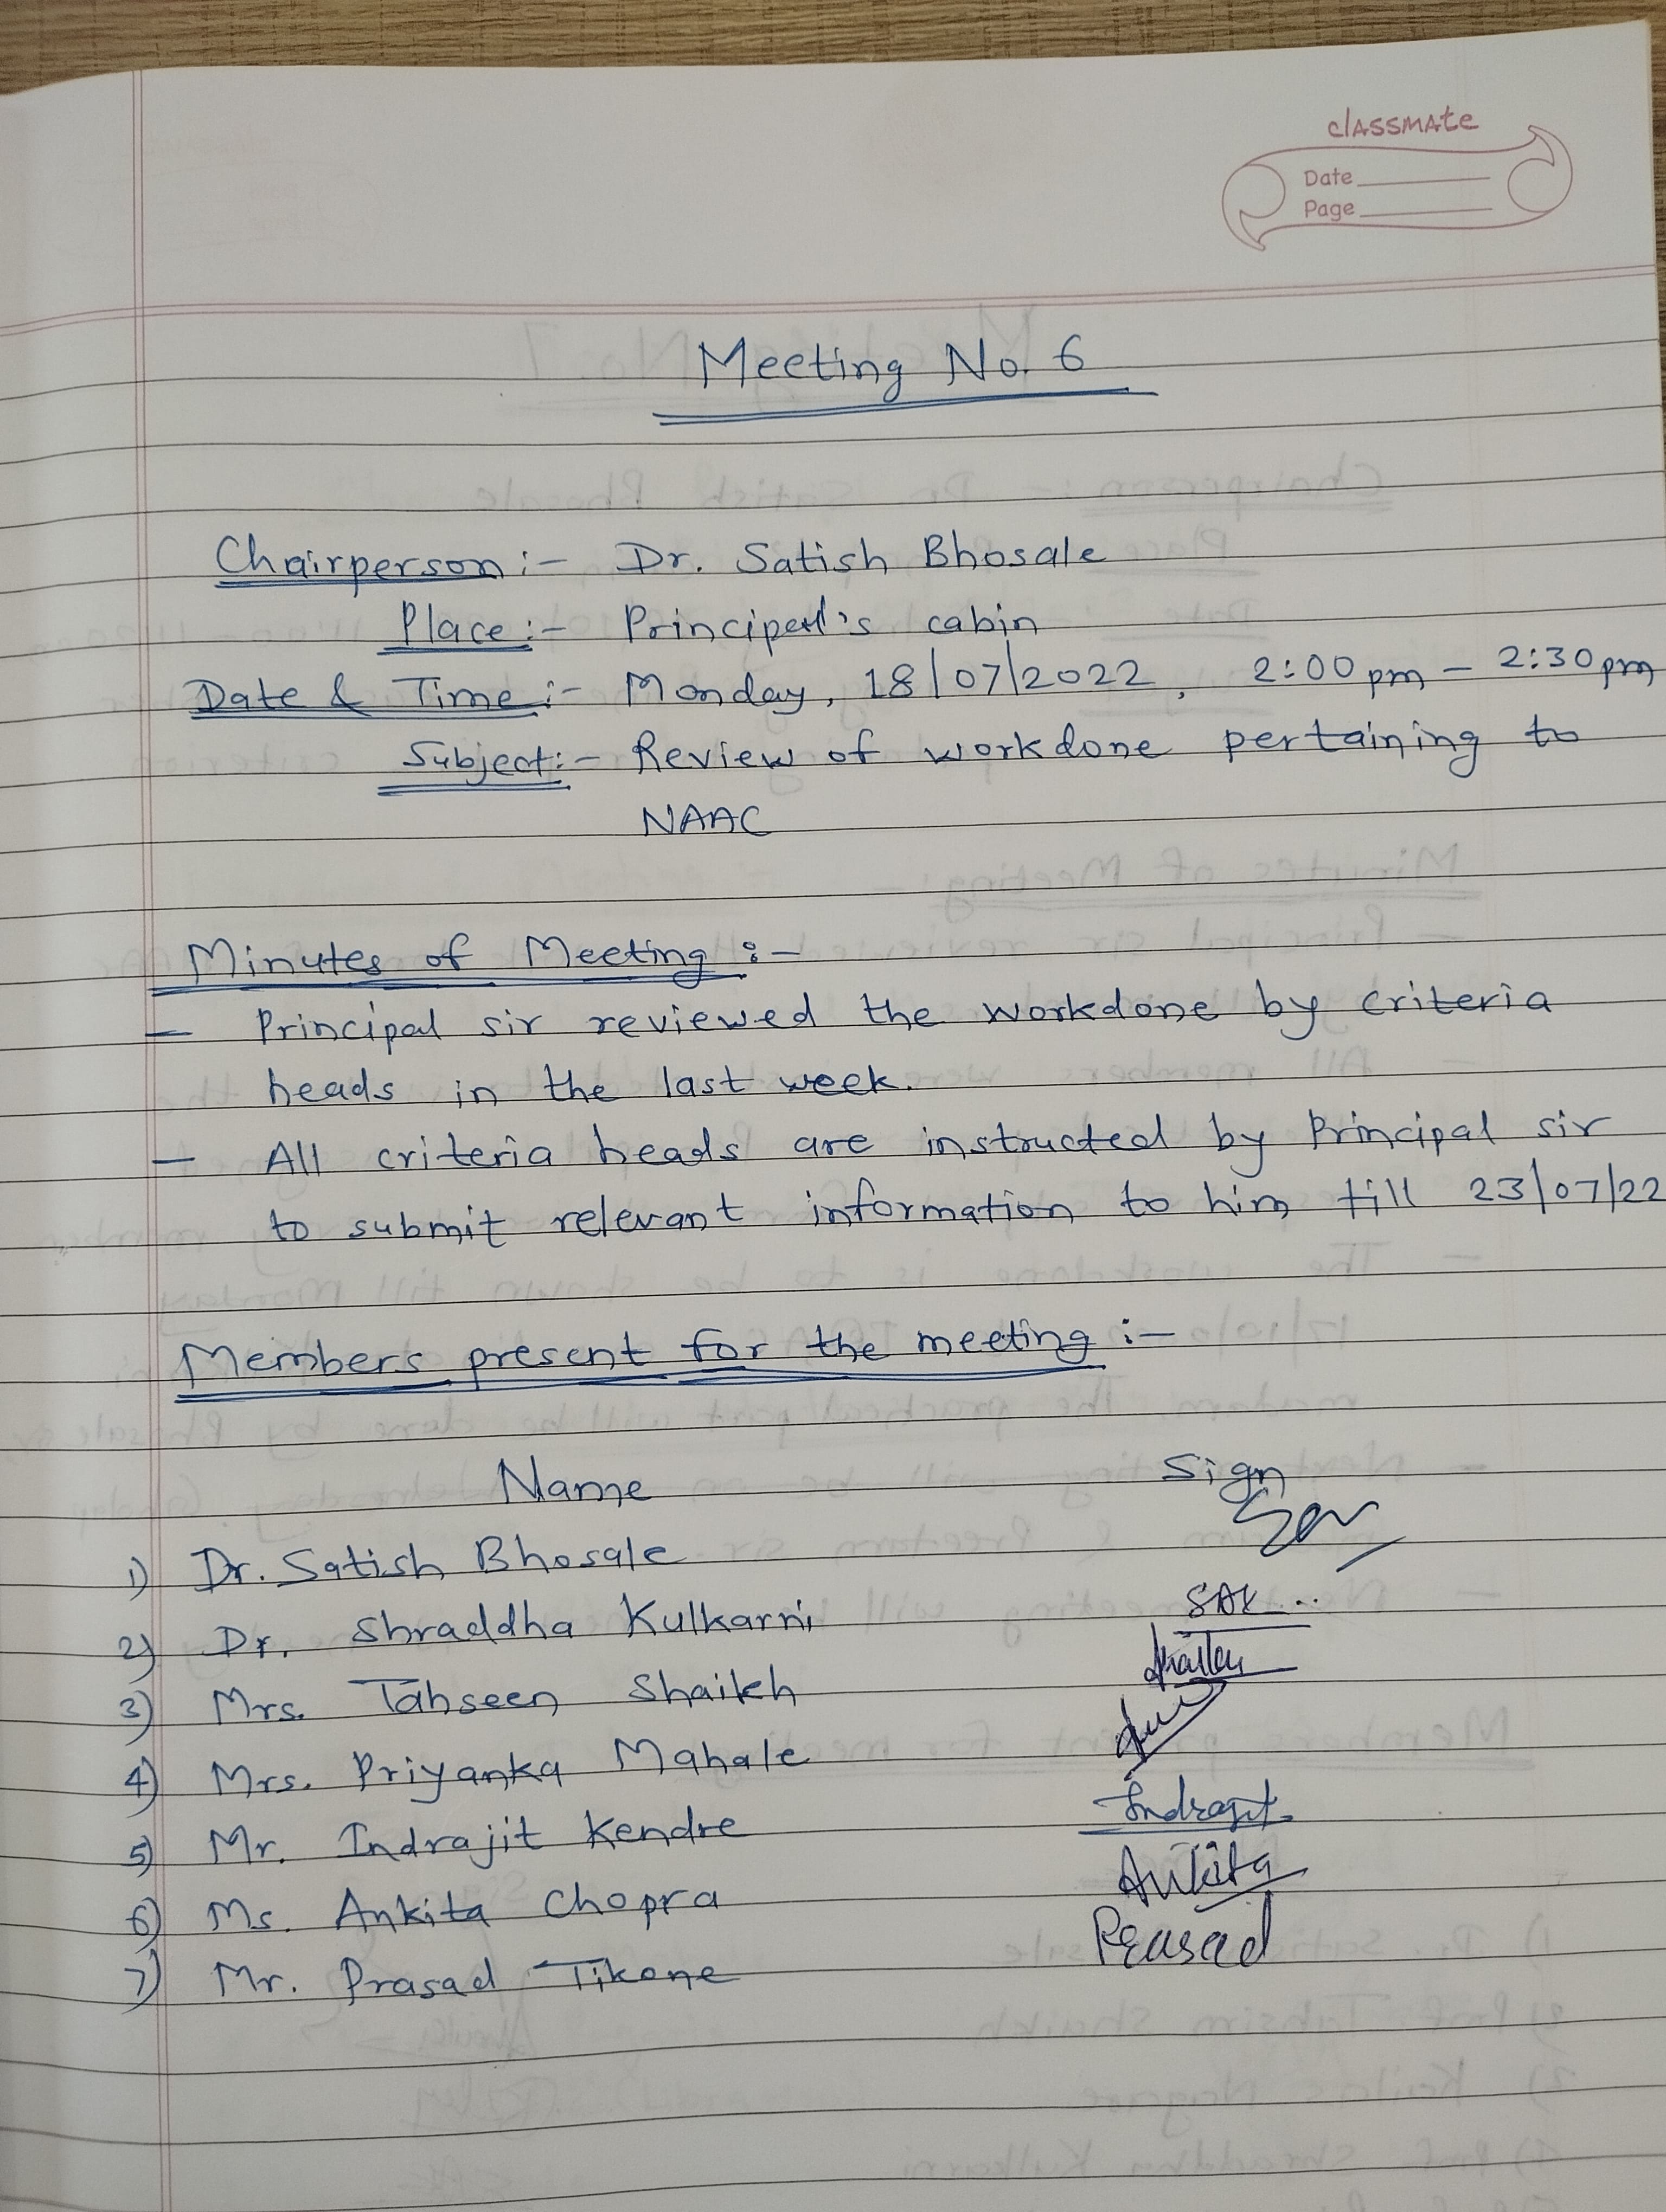 classmate
Date
Page
Meeting No. 6
Chairperson:- Dr. Satish Bhosale
Place:- Principal's cabin
Date & Time:- Monday, 18/07/2022, 2:00 pm - 2:30 pm
Subject:- Review of workdone pertaining to
NAAC
Minutes of Meeting:-
- Principal sir reviewed the workdone by criteria
heads in the last week.
- All criteria heads are instructed by Principal sir
to submit relevant information to him till 23/07/22
Members present for the meeting:-
Name Sign
1) Dr. Satish Bhosale
2) Dr. Shraddha Kulkarni SAK...
3) Mrs. Tahseen Shaikh
4) Mrs. Priyanka Mahale
5) Mr. Indrajit Kendre Indrajit
6) Ms. Ankita Chopra Ankita
7) Mr. Prasad Tikone Prasad